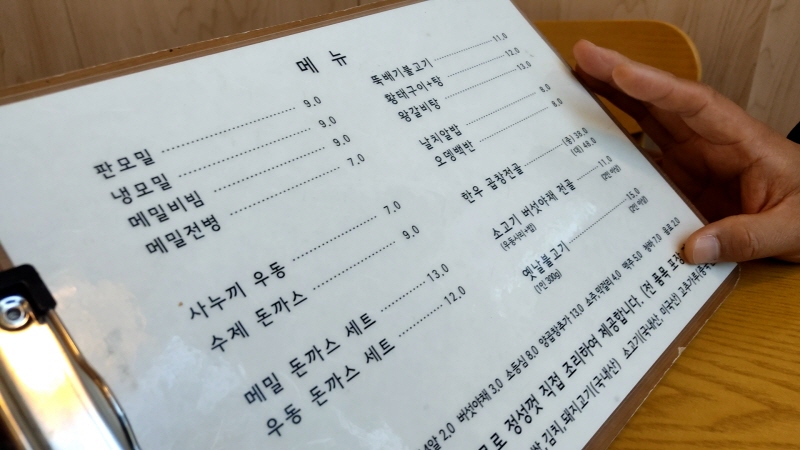 메뉴
판모밀 9.0
냉모밀 9.0
메밀비빔 9.0
메밀전병 7.0
사누끼 우동 7.0
수제 돈까스 9.0
메밀 돈까스 세트 13.0
우동 돈까스 세트 12.0
뚝배기불고기 11.0
황태구이+탕 12.0
왕갈비탕 13.0
날치알밥 8.0
오뎅백반 8.0
한우 곱창전골 (중) 38.0
(대) 48.0
소고기 버섯야채 전골 11.0
(우동사리+밥) (2인 이상)
옛날불고기 15.0
(1인 300g) (2인 이상)
2.0 버섯야채 3.0 소등심 8.0 양곱창추가 13.0 소주,막걸리 4.0 맥주 5.0 청하 7.0 음료 2.0
정성껏 직접 조리하여 제공합니다. (전 품목 포장
김치, 돼지고기(국내산) 소고기(국내산, 미국산)